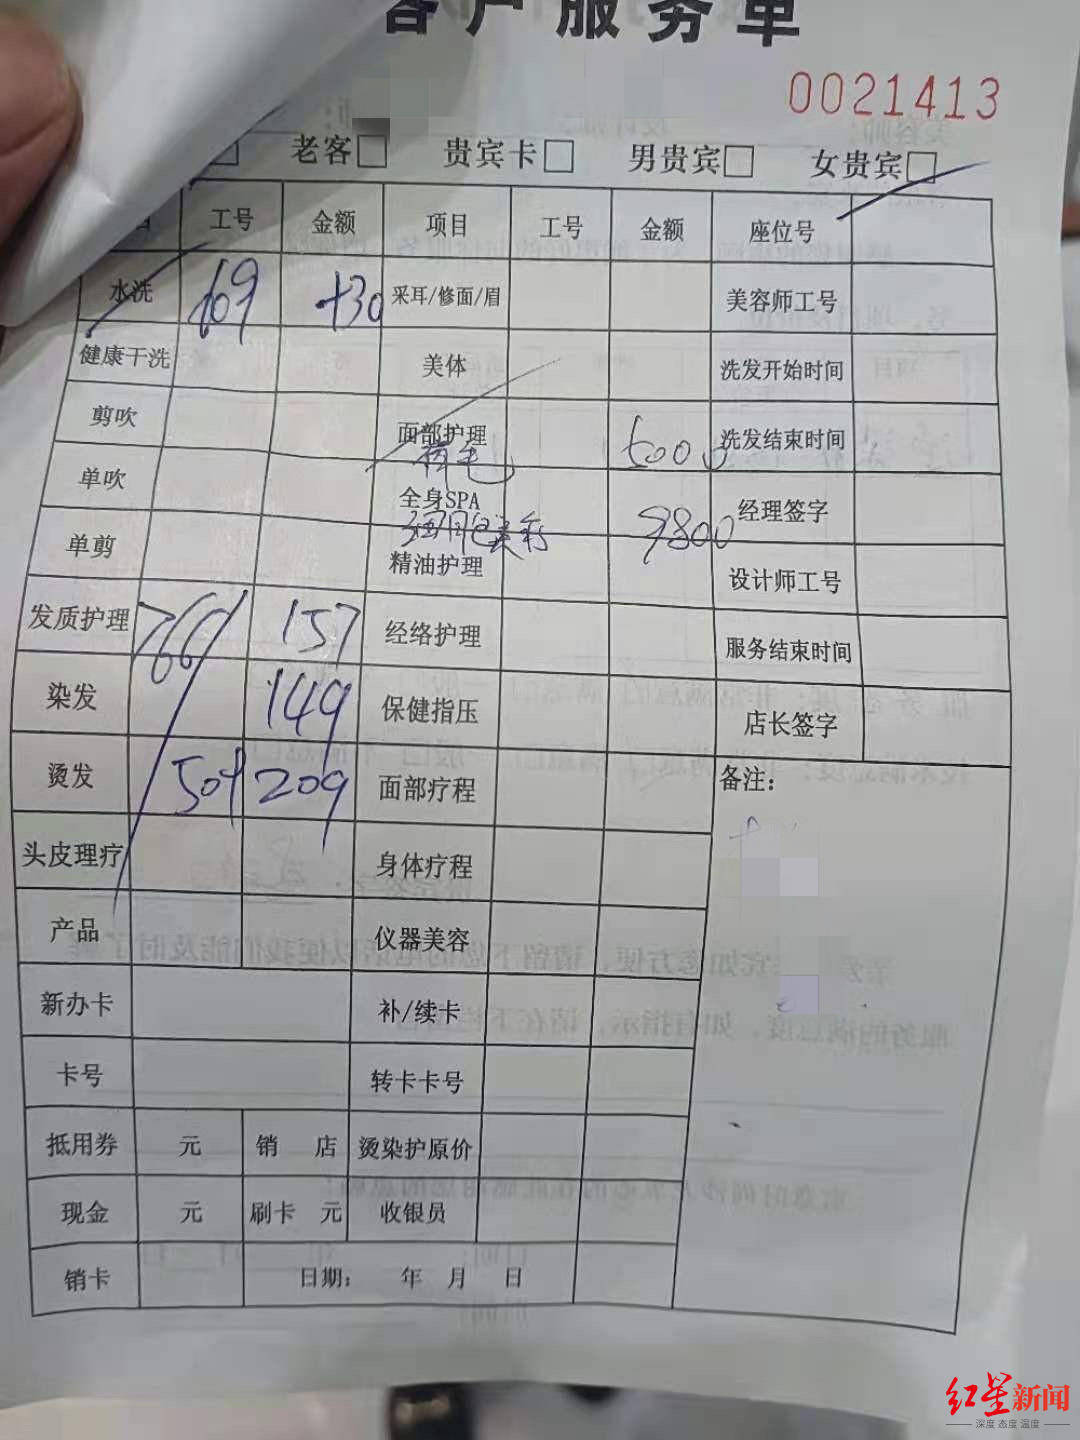 客户服务单
0021413
老客□ 贵宾卡□ 男贵宾□ 女贵宾□
工号 金额 项目 工号 金额 座位号
水洗 +30 采耳/修面/眉 美容师工号
健康干洗 美体 洗发开始时间
剪吹 面部护理 5000 洗发结束时间
单吹 全身SPA 经理签字
9800
单剪 精油护理 设计师工号
发质护理 157 经络护理 服务结束时间
染发 149 保健指压 店长签字
烫发 509 209 面部疗程 备注:
头皮理疗 身体疗程
产品 仪器美容
新办卡 补/续卡
卡号 转卡卡号
抵用券 元 销 店 烫染护原价
现金 元 刷卡 元 收银员
销卡 日期: 年 月 日
红星新闻
深度 态度 温度